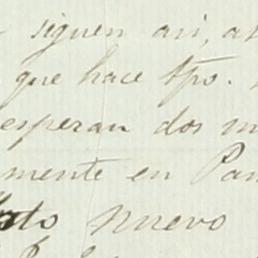 siguen asi, at
que hace tpo.
esperan dos m
mente en Pan
nuevo